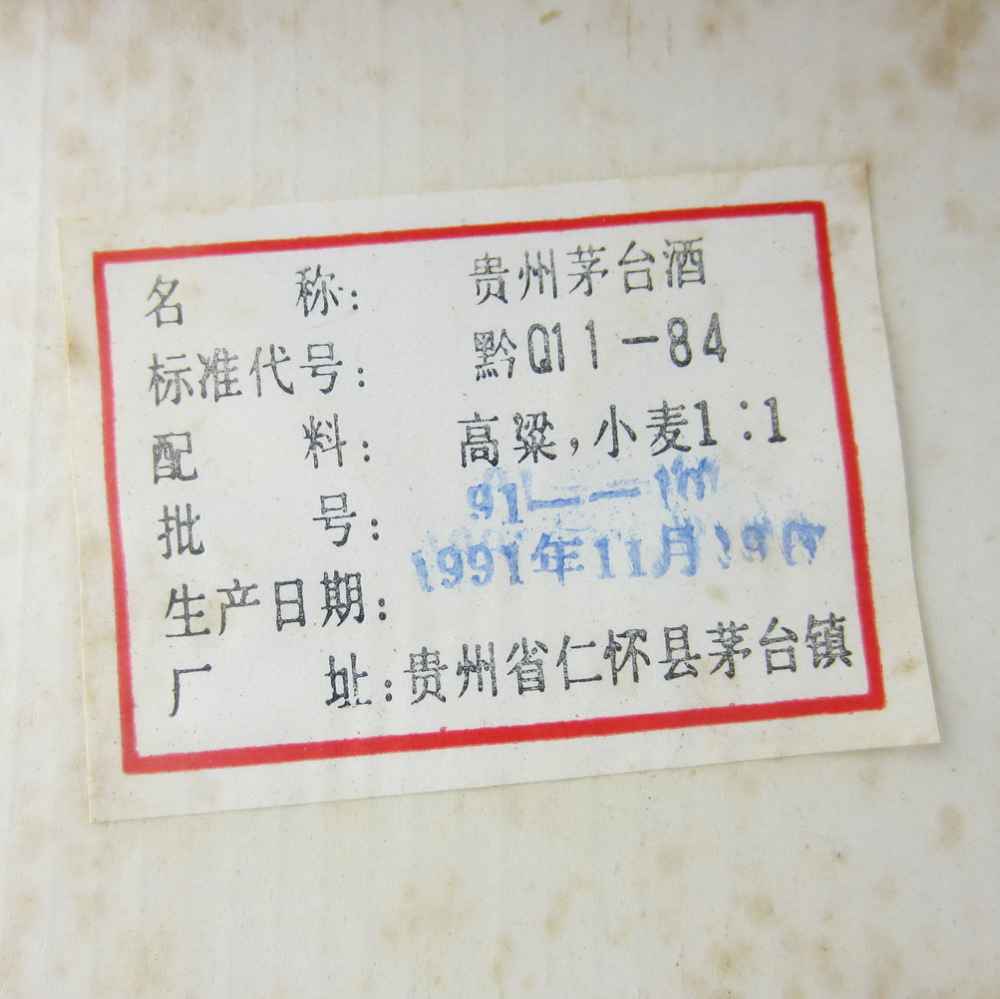 名 称: 贵州茅台酒
标准代号: 黔Q11-84
配 料: 高粱,小麦1:1
批 号: 91—
生产日期: 1991年11月
厂 址:贵州省仁怀县茅台镇